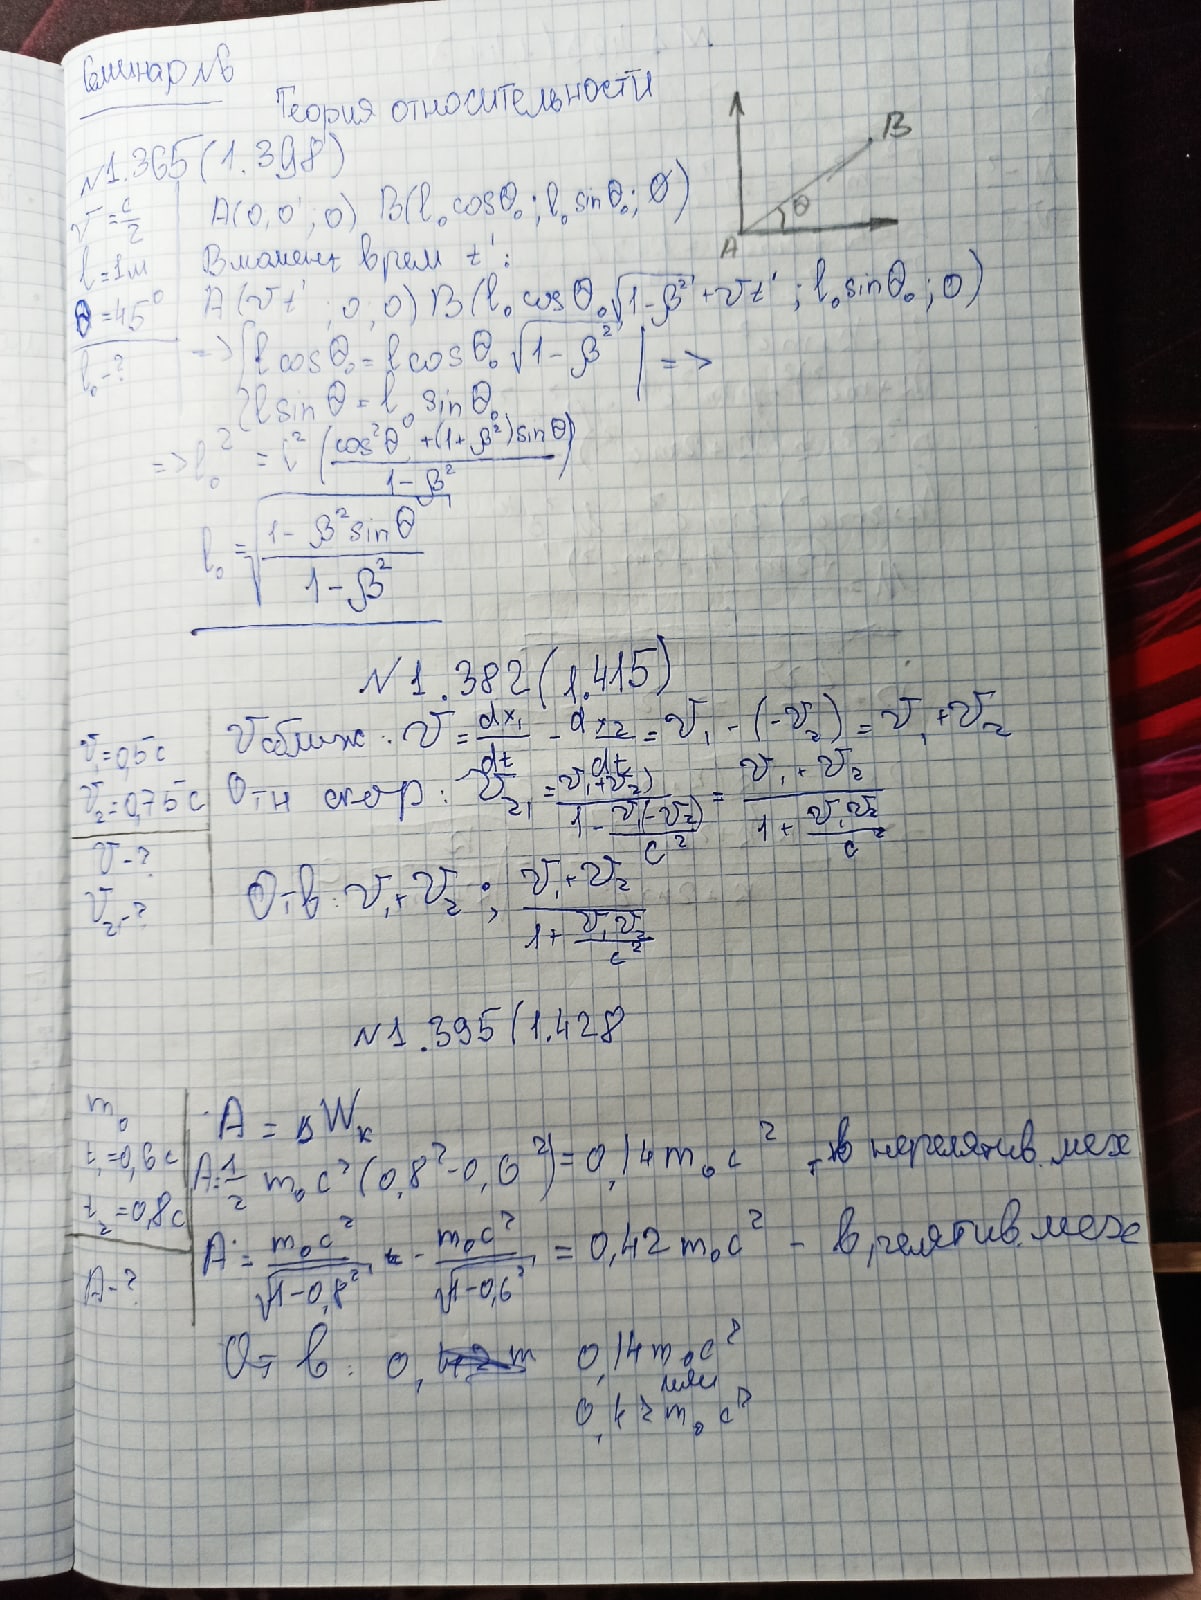 Семинар №6
Теория относительности
№1.365(1.398)
v = c/2
l = 1м
θ = 45°
l₀ - ?
A(0,0;0) B(l₀cosθ₀; l₀sinθ₀; 0)
В момент врем t':
A(vt'; 0, 0) B(l₀cosθ₀√(1-β²)+vt'; l₀sinθ₀; 0)
=> { l cosθ₀ = l cosθ₀ √(1-β²) | =>
l sinθ = l₀ sinθ₀
=> l₀² = l² ((cos²θ + (1+β²)sinθ)/(1-β²))
l₀ = √((1-β²sinθ)/(1-β²))
A B θ
№1.382(1.415)
v₁=0,5c
v₂=0,75c
v-?
v₂₁-?
vсближ: v = dx₁/dt - dx₂/dt = v₁-(-v₂) = v₁+v₂
Отн скор: v₂₁ = (v₁+v₂)/(1-v₁(-v₂)/c²) = (v₁+v₂)/(1+v₁v₂/c²)
Отв: v₁+v₂; (v₁+v₂)/(1+v₁v₂/c²)
№1.395(1.428
m₀
₁=0,6c
₂=0,8c
A-?
A = ΔWк
A=1/2 m₀c²(0,8²-0,6²)=0,14m₀c² - в нерелятив. мех
A = m₀c²/√(1-0,8²) - m₀c²/√(1-0,6²) = 0,42m₀c² - в релятив. мех
Отв: 0, 0,14m₀c²
или
0,42m₀c²